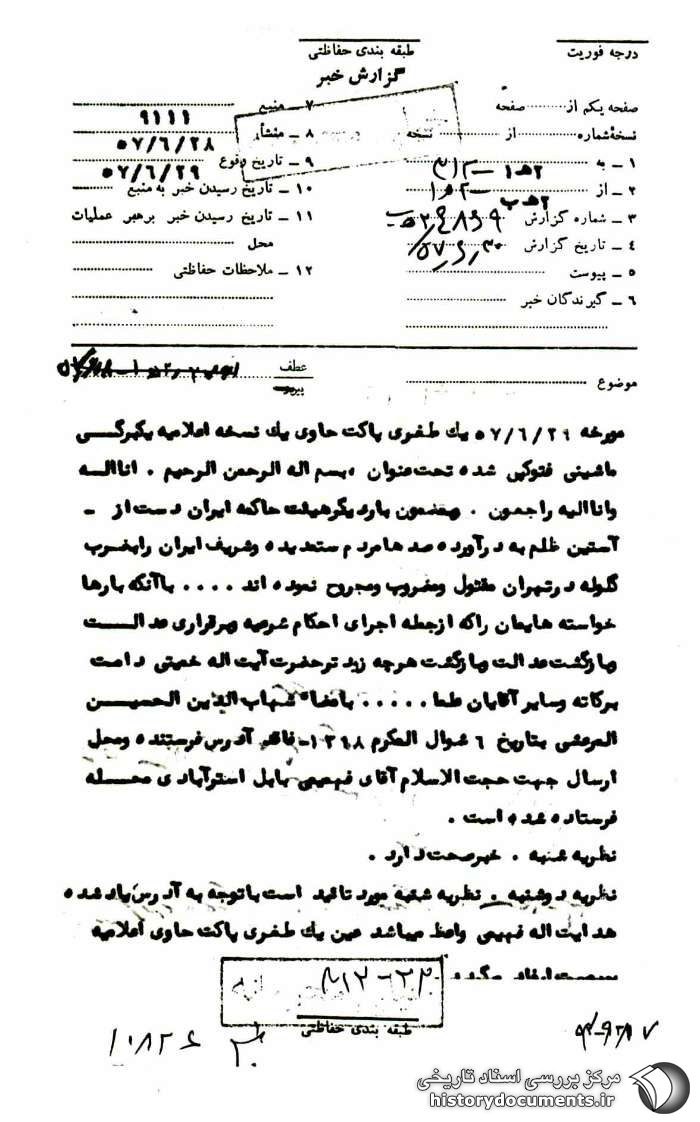 درجه فوریت
طبقه بندی حفاظتی
گزارش خبر
صفحه یکم از صفحه
نسخه شماره از نسخه
۱ ــ به
۲ ــ از
۳ ــ شماره گزارش
۴ ــ تاریخ گزارش
۵ ــ پیوست
۶ ــ گیرندگان خبر
۷ ــ منبع ۹۱۱۱
۸ ــ منشأ
۹ ــ تاریخ وقوع ۵۷/۶/۲۸
۱۰ ــ تاریخ رسیدن خبر به منبع ۵۷/۶/۲۹
۱۱ ــ تاریخ رسیدن خبر برهبر عملیات
محل
۱۲ ــ ملاحظات حفاظتی
موضوع
عطف
پیرو
مورخه ۵۷/۶/۲۹ یک طغری پاکت حاوی یک نسخه اعلامیه یکبرگی
ماشینی فتوکپی شده تحت عنوان ، بسم اله الرحمن الرحیم . اناالــه
واناالیه راجعون . وبمضمون باردیگر هیئت حاکمه ایران دست از ــ
آستین ظلم به درآورده صدها مردم ستمدیده وشریف ایران رابضرب
گلوله درتهران مقتول ومضروب ومجروح نموده اند .... باآنکه بارها
خواسته هایمان راکه ازجمله اجرای احکام شرعیه وبرقراری عدالــت
وبازگشت عدالت وبازگشت هرچه زودتر حضرت آیت اله خمینی دامت
برکاته وسایر آقایان علما ..... بامضاء شهاب الدین الحسیــن
المرعشی بتاریخ ۶ شوال المکرم ۱۳۹۸- فاقد آدرس فرستنده ومحل
ارسال جهت حجت الاسلام آقای فهیمی بابل استرآبادی محــله
فرستاده شده است .
نظریه شنبه . خبرصحت دارد .
نظریه دوشنبه . نظریه شنبه مورد تائید است باتوجه به آدرس یادشده
هدایت اله فهیمی واعظ میباشد عین یک طغری پاکت حاوی اعلامیه
طبقه بندی حفاظتی
مرکز بررسی اسناد تاریخی
historydocuments.ir